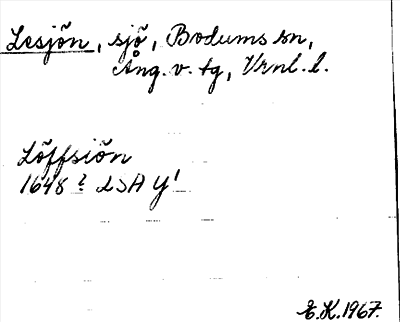 Lesjön, sjö, Bodums sn,
Ång. v. tg, Vrnl. l.
Löffsiön
1648 ? LSA Y 1
E.K. 1967.